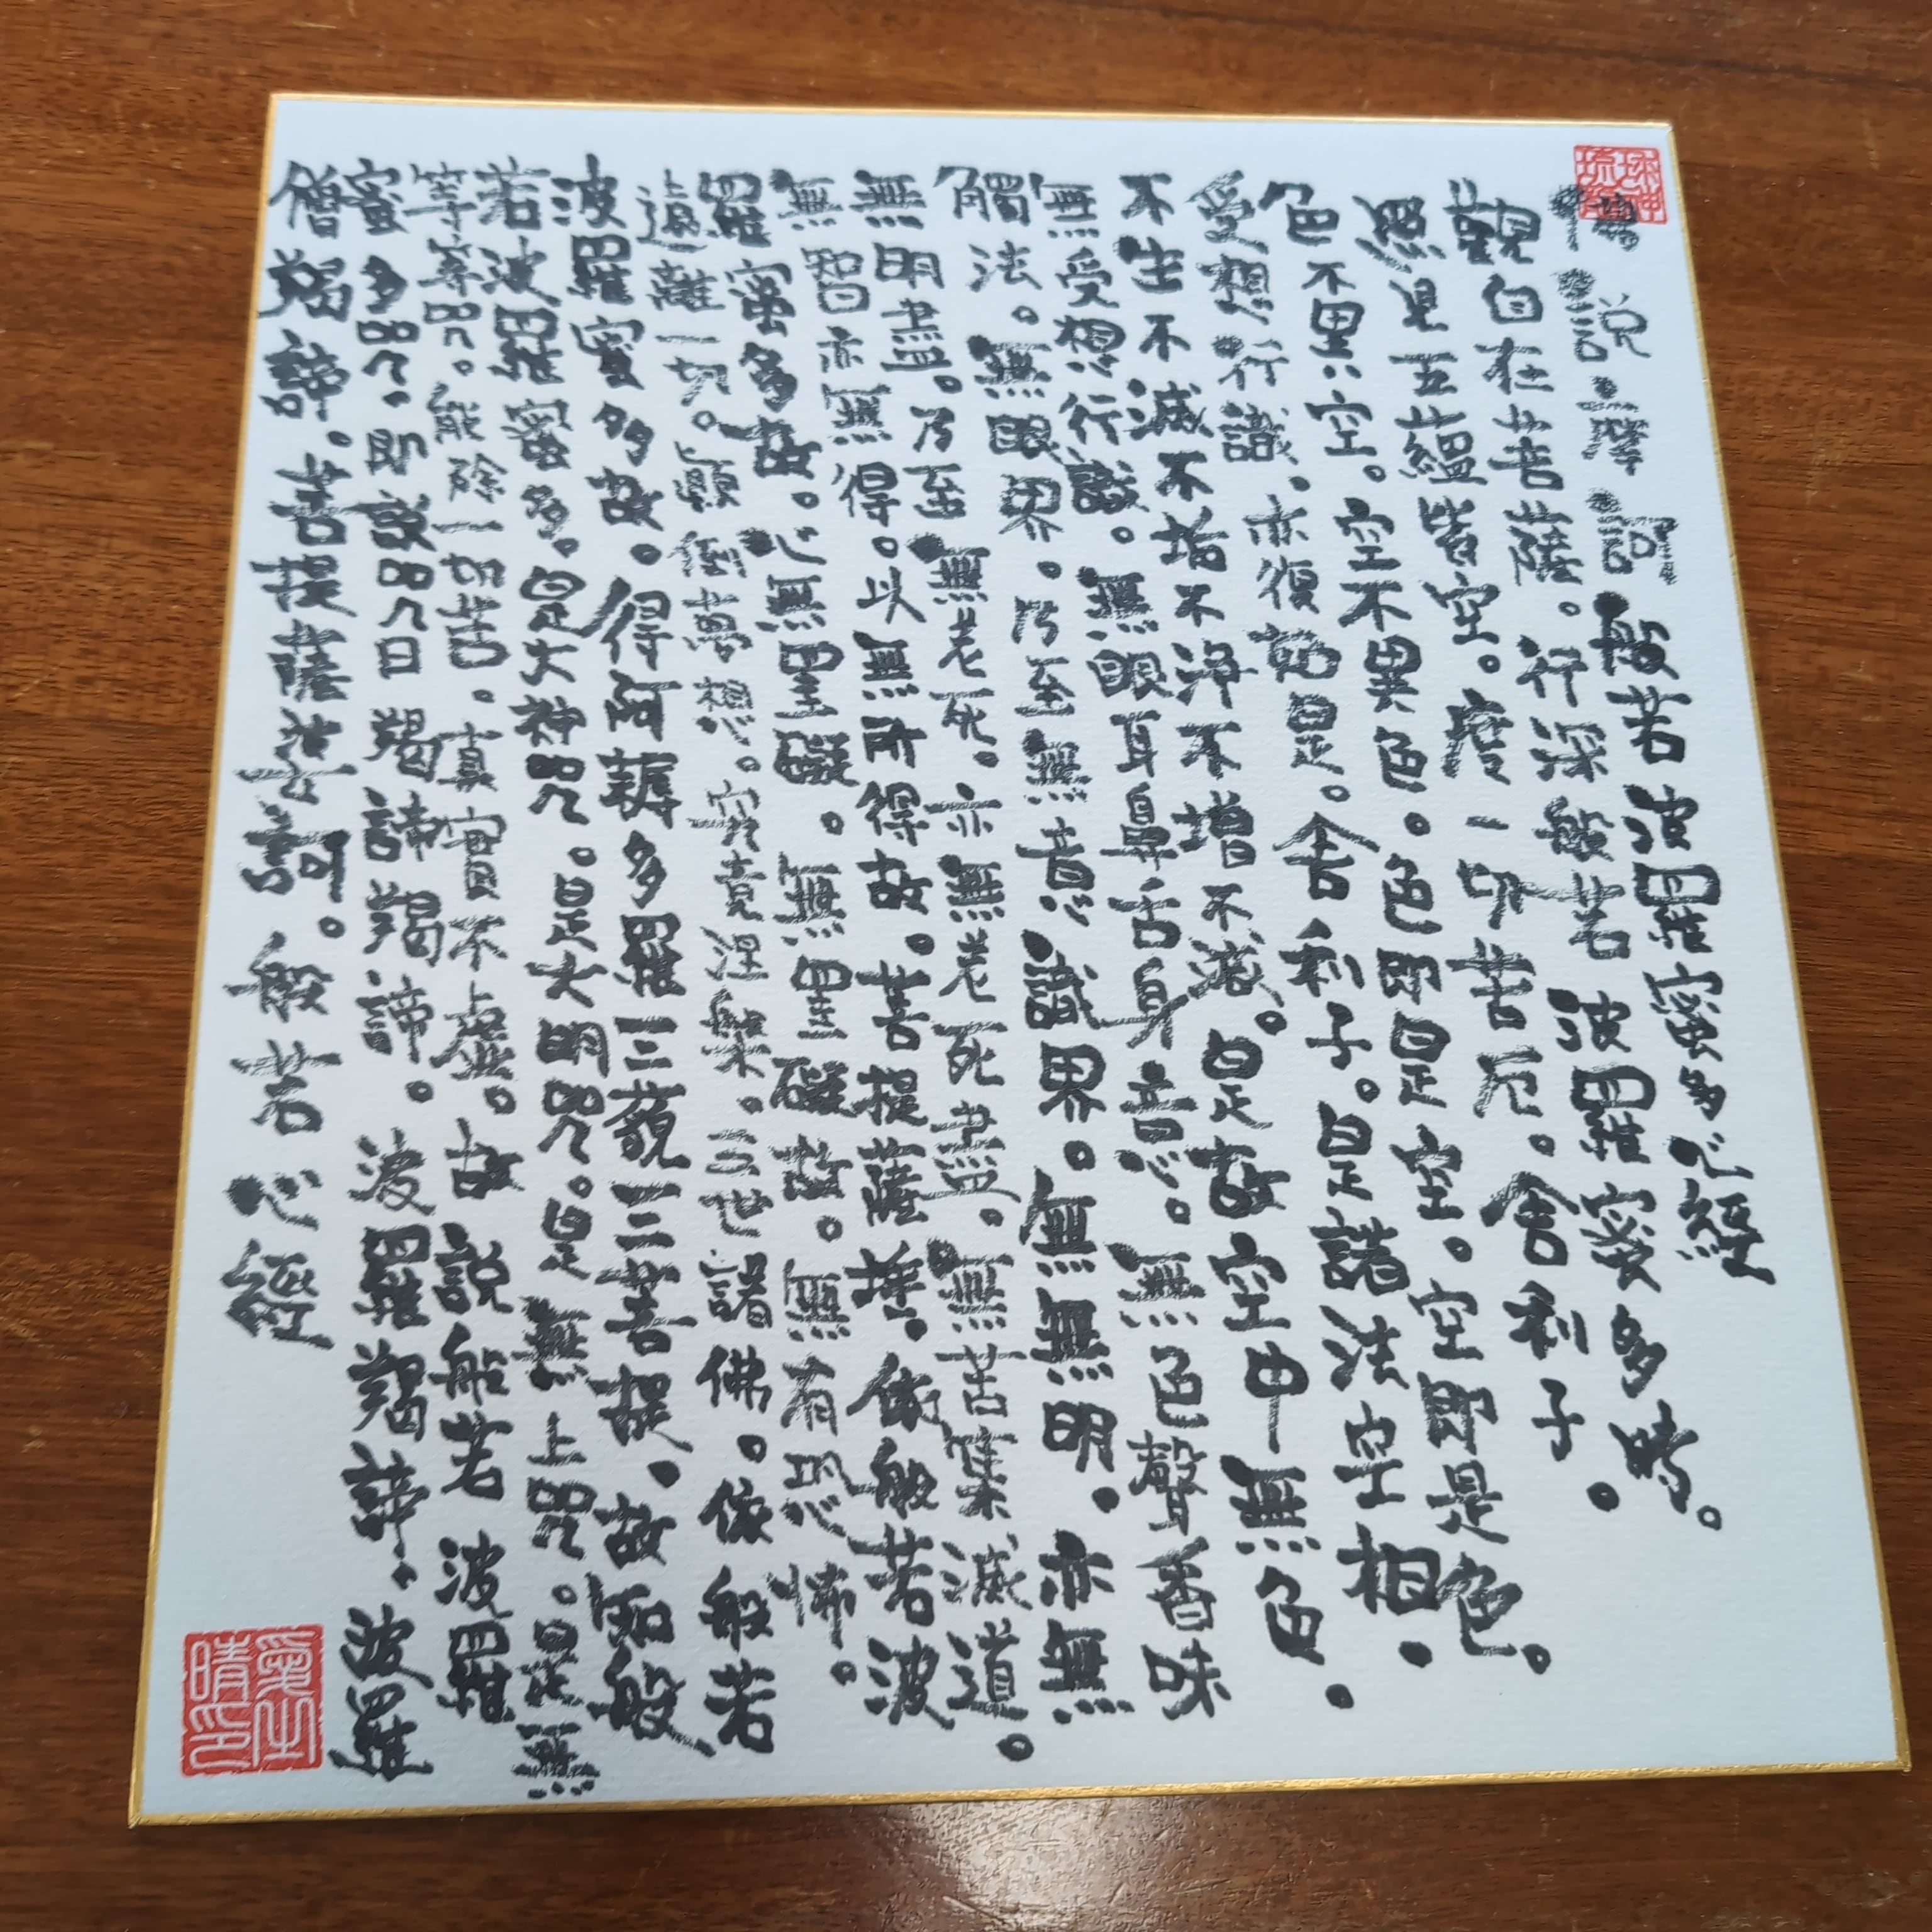 説摩訶般若波羅蜜多心経
觀自在菩薩。行深般若波羅蜜多時。
照見五蘊皆空。度一切苦厄。舎利子。
色不異空。空不異色。色即是空。空即是色。
受想行識。亦復如是。舎利子。是諸法空相。
不生不滅不垢不淨不增不減。是故空中無色。
無受想行識。無眼耳鼻舌身意。無色聲香味
觸法。無眼界。乃至無意識界。無無明。亦無
無明盡。乃至無老死。亦無老死盡。無苦集滅道。
無智亦無得。以無所得故。菩提薩埵。依般若波
羅蜜多故。心無罣礙。無罣礙故。無有恐怖。
遠離一切。顛倒夢想。究竟涅槃。三世諸佛。依般若
波羅蜜多故。得阿耨多羅三藐三菩提。故知般
若波羅蜜多。是大神咒。是大明咒。是無上咒。是無
等等咒。能除一切苦。真實不虛。故説般若波羅
蜜多咒、即説咒曰羯諦羯諦。波羅羯諦、波羅
僧羯諦。菩提薩婆訶。般若心経